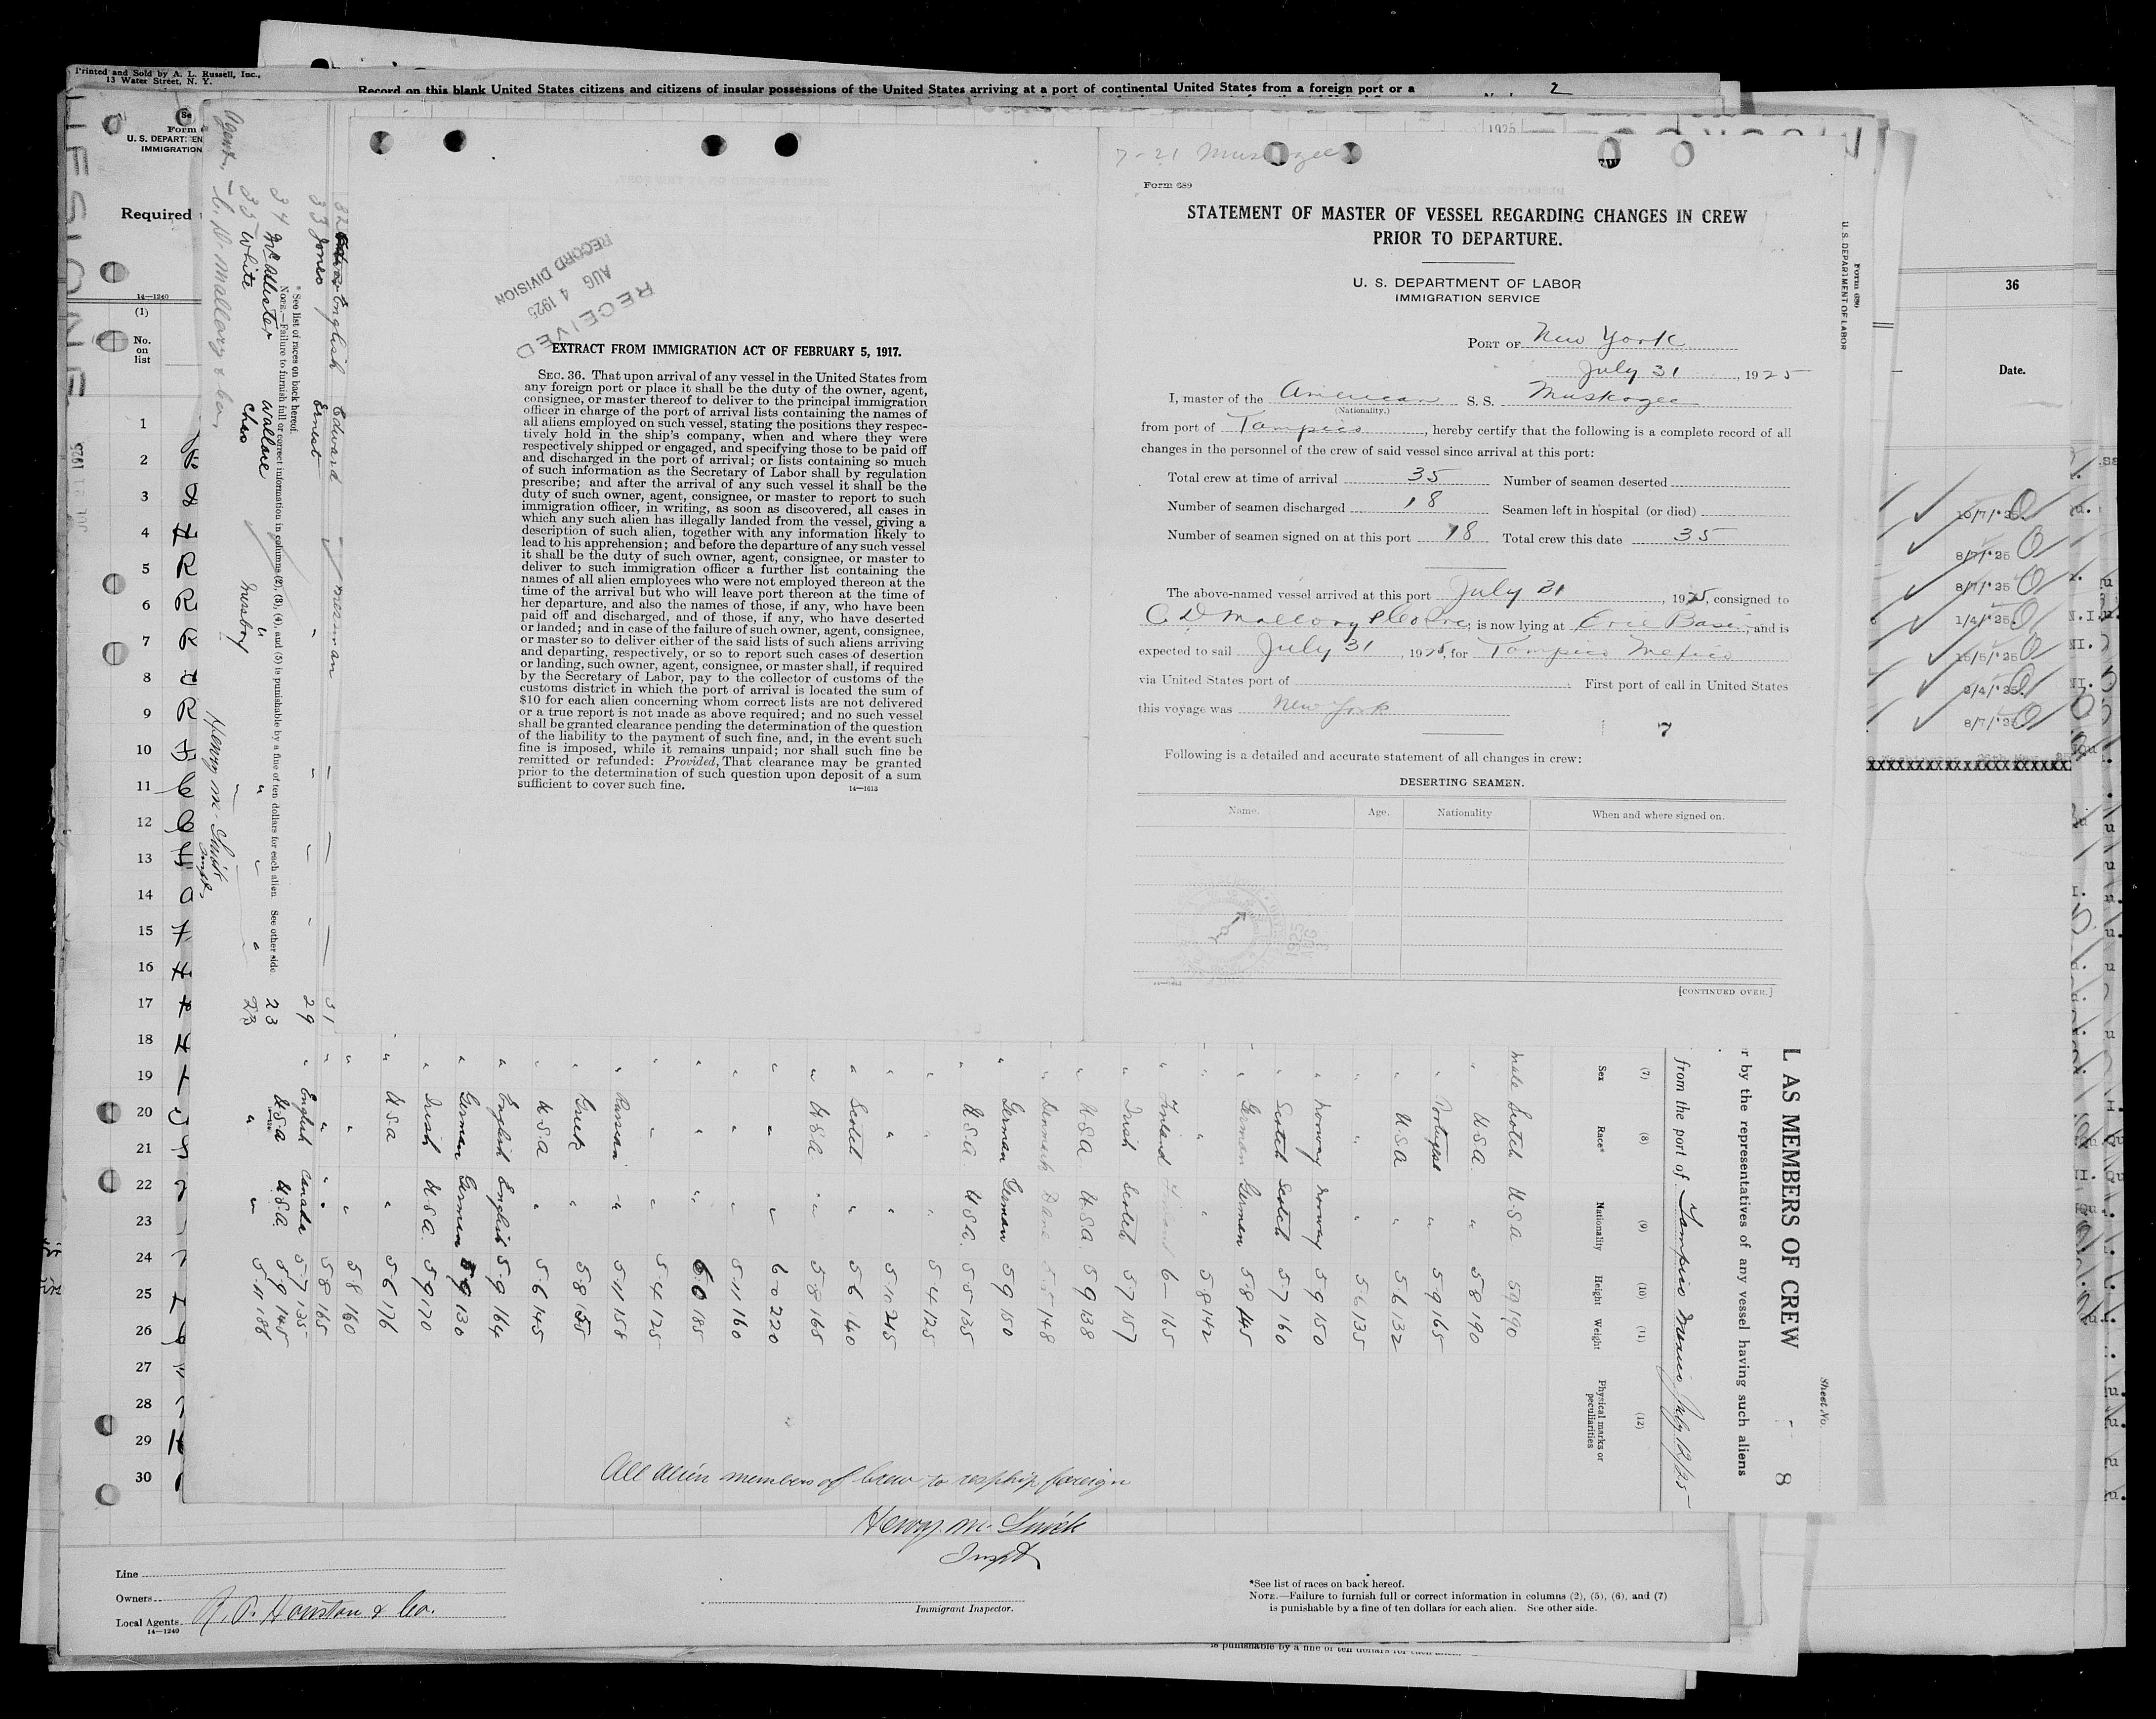 Printed and Sold by A. L. Russell, Inc.,
13 Water Street, N. Y.
Record on this blank United States citizens and citizens of insular possessions of the United States arriving at a port of continental United States from a foreign port or a
2
7-21 Muskogee
Form 689
STATEMENT OF MASTER OF VESSEL REGARDING CHANGES IN CREW
PRIOR TO DEPARTURE.
U. S. DEPARTMENT OF LABOR
IMMIGRATION SERVICE
PORT OF New York
July 31, 1925
I, master of the American S. S. Muskogee
(Nationality.)
from port of Tampico, hereby certify that the following is a complete record of all
changes in the personnel of the crew of said vessel since arrival at this port:
Total crew at time of arrival 35 Number of seamen deserted
Number of seamen discharged 18 Seamen left in hospital (or died)
Number of seamen signed on at this port 18 Total crew this date 35
The above-named vessel arrived at this port July 31, 1925, consigned to
C D Mallory & Co Inc; is now lying at Erie Basin, and is
expected to sail July 31, 1925, for Tampico Mexico
via United States port of First port of call in United States
this voyage was New York
7
Following is a detailed and accurate statement of all changes in crew:
DESERTING SEAMEN.
Name. Age. Nationality When and where signed on.
14—1613
[CONTINUED OVER.]
RECEIVED
AUG 4 1925
RECORD DIVISION
EXTRACT FROM IMMIGRATION ACT OF FEBRUARY 5, 1917.
SEC. 36. That upon arrival of any vessel in the United States from
any foreign port or place it shall be the duty of the owner, agent,
consignee, or master thereof to deliver to the principal immigration
officer in charge of the port of arrival lists containing the names of
all aliens employed on such vessel, stating the positions they respec-
tively hold in the ship's company, when and where they were
respectively shipped or engaged, and specifying those to be paid off
and discharged in the port of arrival; or lists containing so much
of such information as the Secretary of Labor shall by regulation
prescribe; and after the arrival of any such vessel it shall be the
duty of such owner, agent, consignee, or master to report to such
immigration officer, in writing, as soon as discovered, all cases in
which any such alien has illegally landed from the vessel, giving a
description of such alien, together with any information likely to
lead to his apprehension; and before the departure of any such vessel
it shall be the duty of such owner, agent, consignee, or master to
deliver to such immigration officer a further list containing the
names of all alien employees who were not employed thereon at the
time of the arrival but who will leave port thereon at the time of
her departure, and also the names of those, if any, who have been
paid off and discharged, and of those, if any, who have deserted
or landed; and in case of the failure of such owner, agent, consignee,
or master so to deliver either of the said lists of such aliens arriving
and departing, respectively, or so to report such cases of desertion
or landing, such owner, agent, consignee, or master shall, if required
by the Secretary of Labor, pay to the collector of customs of the
customs district in which the port of arrival is located the sum of
$10 for each alien concerning whom correct lists are not delivered
or a true report is not made as above required; and no such vessel
shall be granted clearance pending the determination of the question
of the liability to the payment of such fine, and, in the event such
fine is imposed, while it remains unpaid; nor shall such fine be
remitted or refunded: Provided, That clearance may be granted
prior to the determination of such question upon deposit of a sum
sufficient to cover such fine.
14—1613
Form 689
U. S. DEPARTMENT OF LABOR
Sheet No.
L AS MEMBERS OF CREW
8
r by the representatives of any vessel having such aliens
from the port of Tampico Mexico July 12/25
(7) (8) (9) (10) (11) (12)
Sex Race* Nationality Height Weight Physical marks or peculiarities
male Scotch U.S.A. 59 190
" U.S.A. " 58 190
" Portugese " 59 165
" U.S.A " 56 132
" " " 56 135
" Norway Norway 59 150
" Scotch Scotch 57 160
" German German 58 145
" " " 58 142
" Finland Finland 6- 165
" Irish Scotch 57 157
" U.S.A. U.S.A. 59 138
" Denmark Dane 55 148
" German German 59 150
" U.S.A. U.S.A. 55 135
" " " 54 125
" " " 510 215
" Scotch " 56 140
" U.S.A " 58 165
" " " 60 220
" " " 511 160
" " " 60 185
" " " 54 125
" Russian " 511 158
" Greek " 58 155
" U.S.A " 56 145
" English English 59 164
" German German 59 130
" Irish U.S.A. 59 170
" U.S.A " 56 176
" " " 58 160
" " " 58 165
" English Canada 57 135
U.S.A U.S.A 59 145
" " 511 186
32 English Edward Messman 31
33 Jones Ernest " 29
34 McAllister Wallace " 23
35 White Chas Messboy 23
* See list of races on back hereof.
NOTE.—Failure to furnish full or correct information in columns (2), (3), (4), and (5) is punishable by a fine of ten dollars for each alien. See other side.
Agent - C. D. Mallory & Co.
Henry M. Smick
Inspt.
All alien members of crew to reship foreign
Henry M. Smick
Inspt
Form
U. S. DEPARTMEN
IMMIGRATION
Required
14—1240
(1)
No.
on
list
1
2
3
4
5
6
7
8
9
10
11
12
13
14
15
16
17
18
19
20
21
22
23
24
25
26
27
28
29
30
Line
Owners
Local Agents R. P. Houston & Co.
14—1240
Immigrant Inspector.
*See list of races on back hereof.
NOTE.—Failure to furnish full or correct information in columns (2), (5), (6), and (7)
is punishable by a fine of ten dollars for each alien. See other side.
36
Date.
10/7/'25
8/7/'25
8/7/'25
1/4/'25
15/5/'25
2/4/'25
8/7/'25